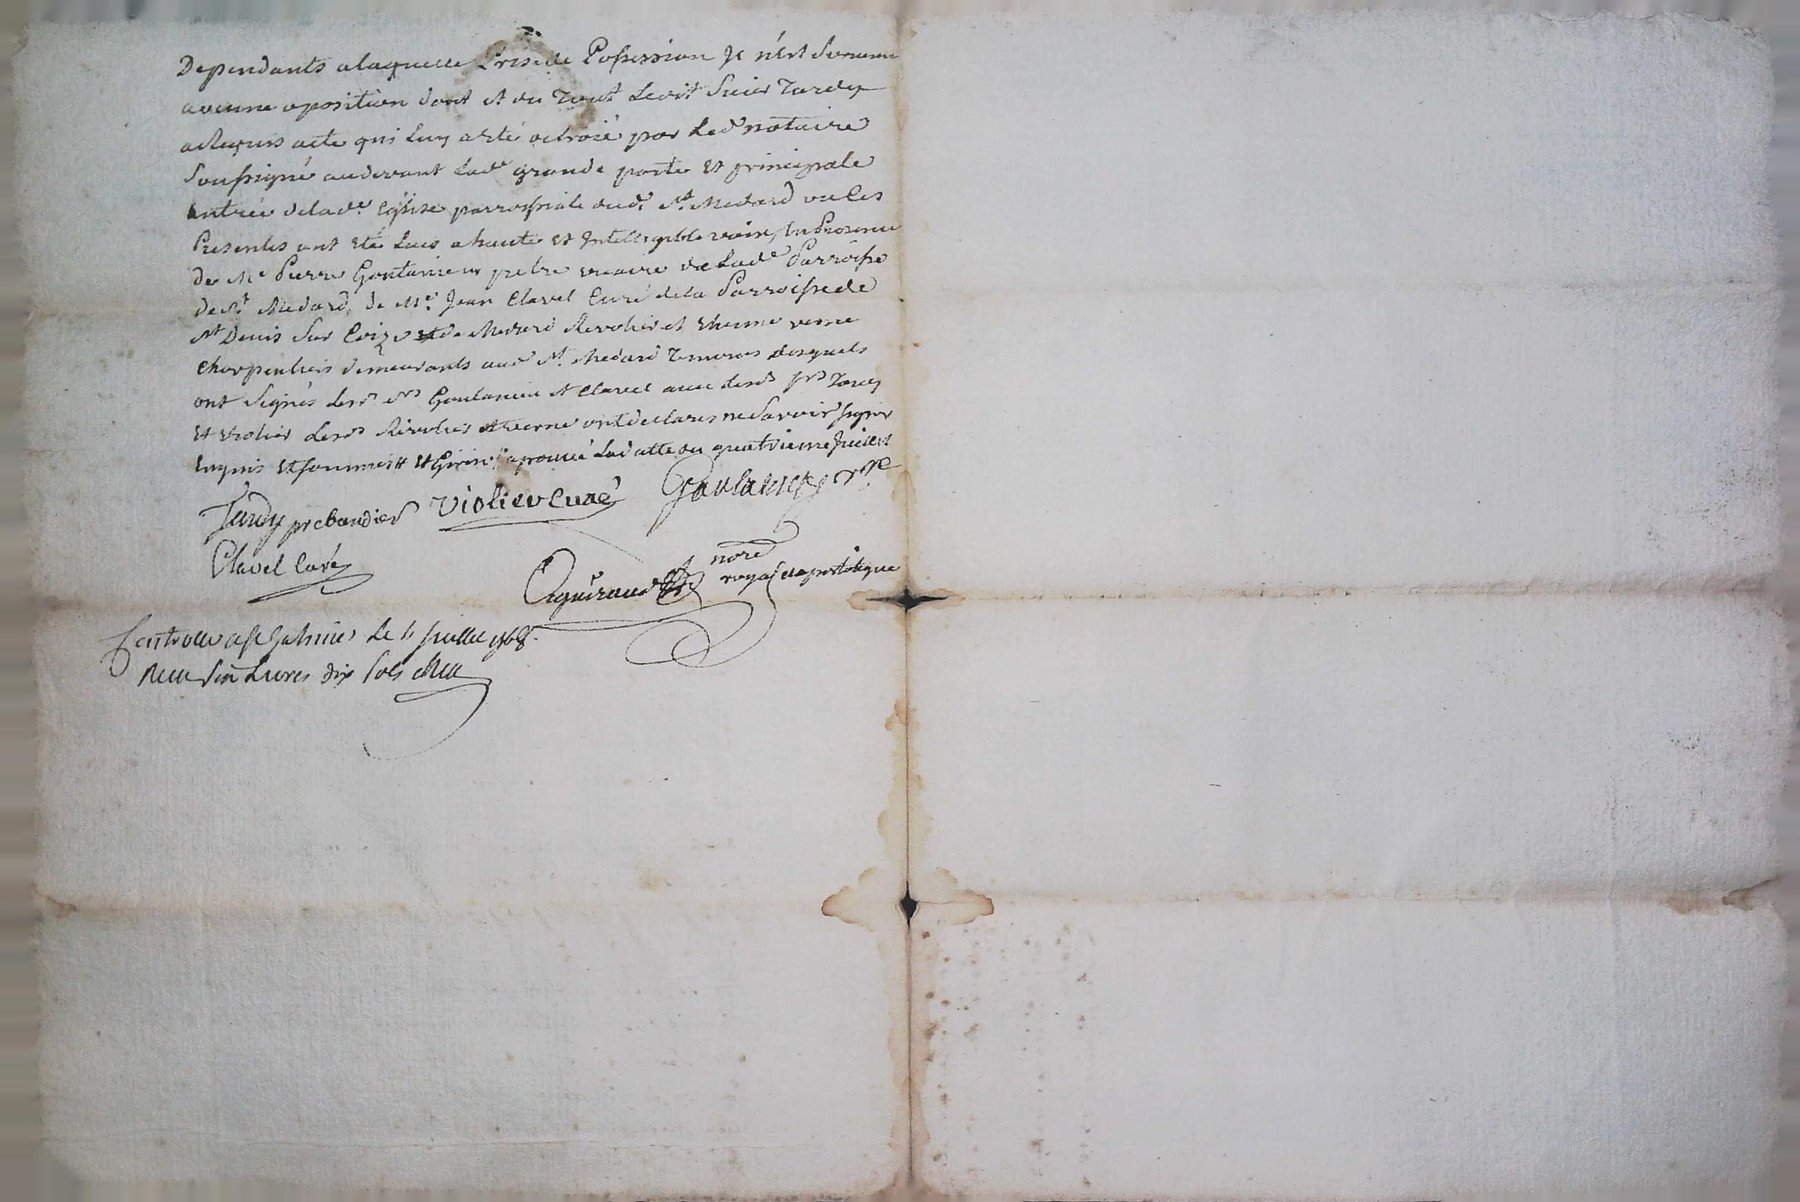 Dependants a laquelle Prise de Possession Je n'est survenu
aucune oposition dont et du Tout Ledit Sieur Tardy
a Requis acte qui luy a eté octroié par Led. notaire
soussigné audevant Lad.e grande porte et principale
Entrée de lad.e Eglise parroissiale dud. St. Medard ou les
Presentes ont eté Lues a haute et Intelligible voix, En Presence
De Me Pierre prebtre vicaire de Lad.e Parroisse
de St. Medard, de Me. Jean Clavel Curé de la Parroisse de
St Denis Sur Coize et de Medard Revolier et
Charpentiers demeurants aud. St. Medard Temoins Lesquels
ont signés Les. et Clavel avec Lesd. Srs Tardy
et Violier Lesd. ont declarés ne savoir signer
Enquis et sommés aprouvé La datte du quatrieme Juillet
Tardy prebandier Violier Curé vre
Clavel Curé
nore
royal et apostolique
Controllé a St Galmier Le Juillet 1768.
Recu Livres dix sols